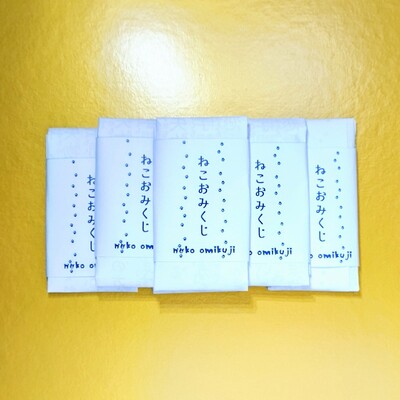 ねこおみくじ
neko omikuji
ねこおみくじ
neko omikuji
ねこおみくじ
neko omikuji
ねこおみくじ
omikuji
ねこおみくじ
omikuji